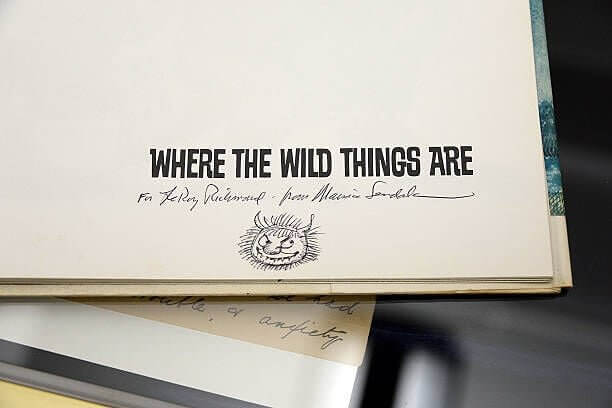 WHERE THE WILD THINGS ARE
For LeRoy Richmond - from Maurice Sendak
had
trouble, & anxiety